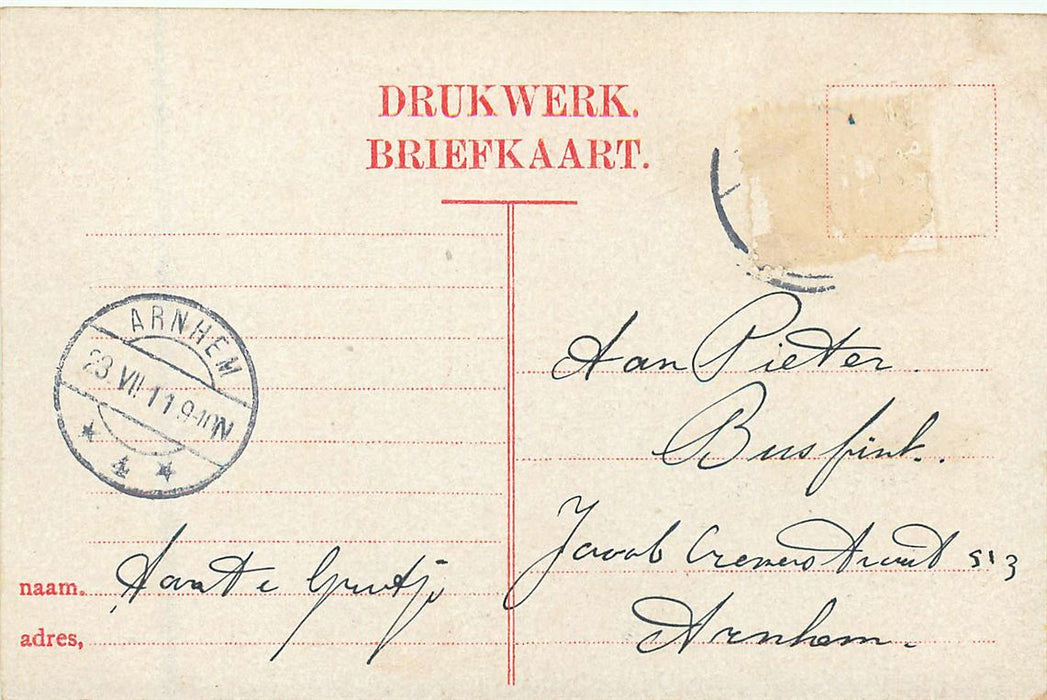 DRUKWERK.
BRIEFKAART.
ARNHEM
23 VII.11 9-10N
4
Aan Pieter
Busfink.
Jacob Cremerstraat 513
Arnhem.
naam. Tante Gretje
adres,